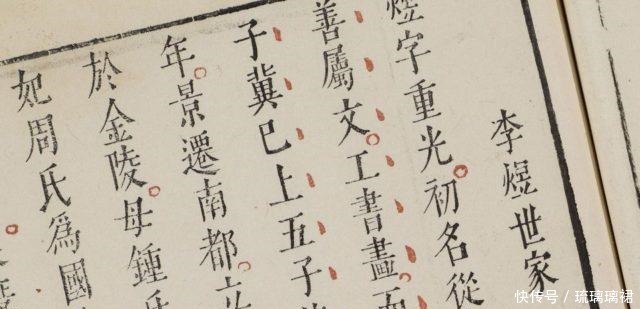 李煜世家
煜字重光初名從
善屬文工書畫
子冀已上五子
年景遷南都立
於金陵母鍾氏
妃周氏為國
快传号／琉璃璃裙